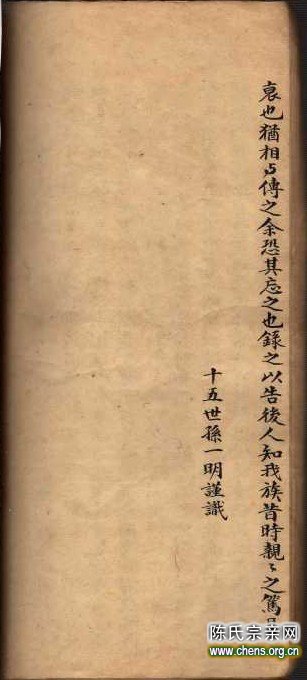 哀也猶相与傳之余恐其忘之也錄之以告後人知我族昔時親〻之篤
十五世孫一明謹識
陈氏宗亲网
www.chens.org.cn